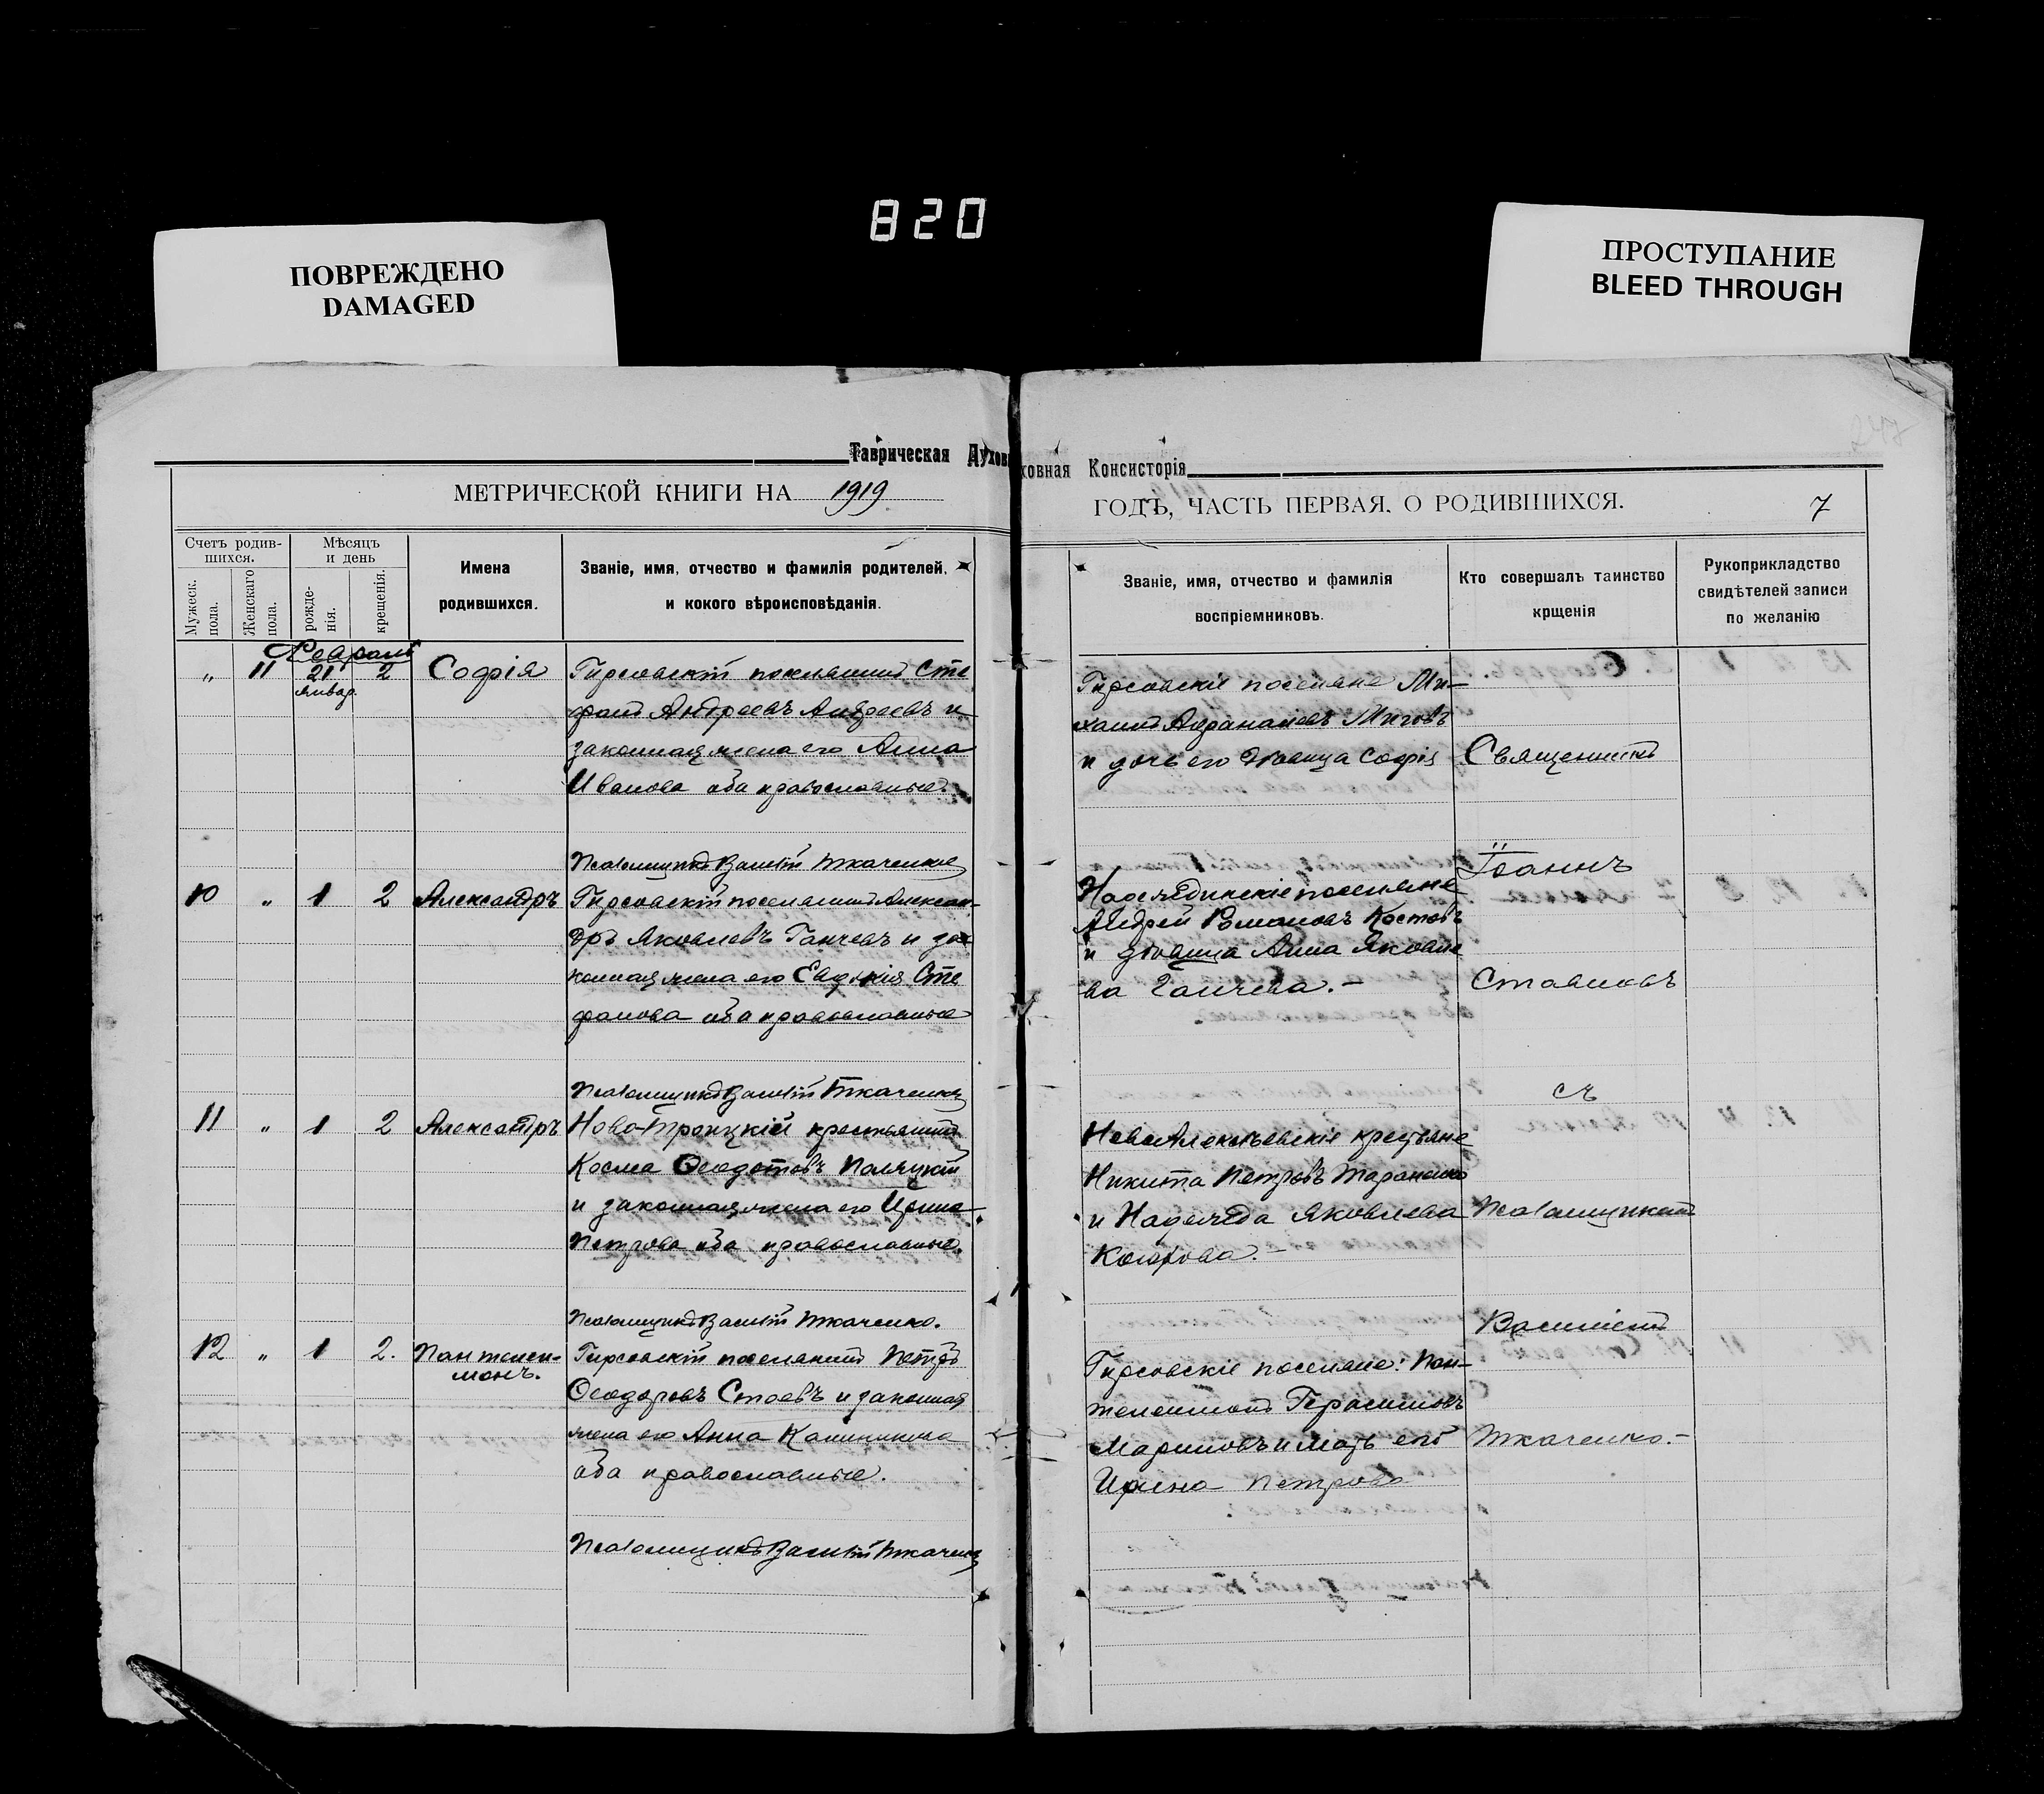 820
ПОВРЕЖДЕНО
DAMAGED
ПРОСТУПАНИЕ
BLEED THROUGH
Таврическая Духов
ховная Консисторія
МЕТРИЧЕСКОЙ КНИГИ НА 1919
ГОДЪ, ЧАСТЬ ПЕРВАЯ, О РОДИВШИХСЯ.
7
Счетъ родив-
шихся.
Мужеск.
пола.
Женскаго
пола.
Мѣсяцъ
и день
рожде-
нія.
крещенія.
Имена
родившихся.
Званіе, имя, отчество и фамилія родителей,
и кокого вѣроисповѣданія.
Званіе, имя, отчество и фамилія
воспріемниковъ.
Кто совершалъ таинство
крщенія
Рукоприкладство
свидѣтелей записи
по желанію
Февраль
„ 11 21 2 Софія
Январ.
Гирсовскій поселянинъ Сте
фанъ Андреевъ Андреевъ и
законная жена его Анна
Иванова оба православные.
Псаломщикъ Василій Ткаченко
Гирсовскіе поселяне Ми-
хаилъ Митовъ
и дочь его дѣвица Софія
10 „ 1 2 Александръ
Гирсовскій поселянинъ Алексан-
дръ Яковлевъ Ганчевъ и за-
конная жена его Евдокія Сте
фанова оба православные
Псаломщикъ Василій Ткаченко
поселяне
Андрей Романовъ Костовъ
и дѣвица Анна Яковле
ва Ганчева.-
11 „ 1 2 Александръ
Ново-Троицкій крестьянинъ
Косма Ѳеодотовъ
и законная жена его Ирина
Петрова оба православные.
Псаломщикъ Василій Ткаченко.
НовоАлексѣевскіе крестьяне
Никита Петровъ Тараненко
и Надежда Яковлева
12 „ 1 2. Пантелеи-
монъ.
Гирсовскій поселянинъ Петръ
Ѳеодоровъ Стоевъ и законная
жена его Анна Калинкина
оба православные.
Псаломщикъ Василій Ткаченко
Гирсовскіе поселяне: Пан-
телеимонъ Герасимовъ
Мариновъ и мать его
Ирина Петрова
Священникъ
Іоаннъ
Ставновъ
съ
Псаломщикомъ
Василіемъ
Ткаченко.-